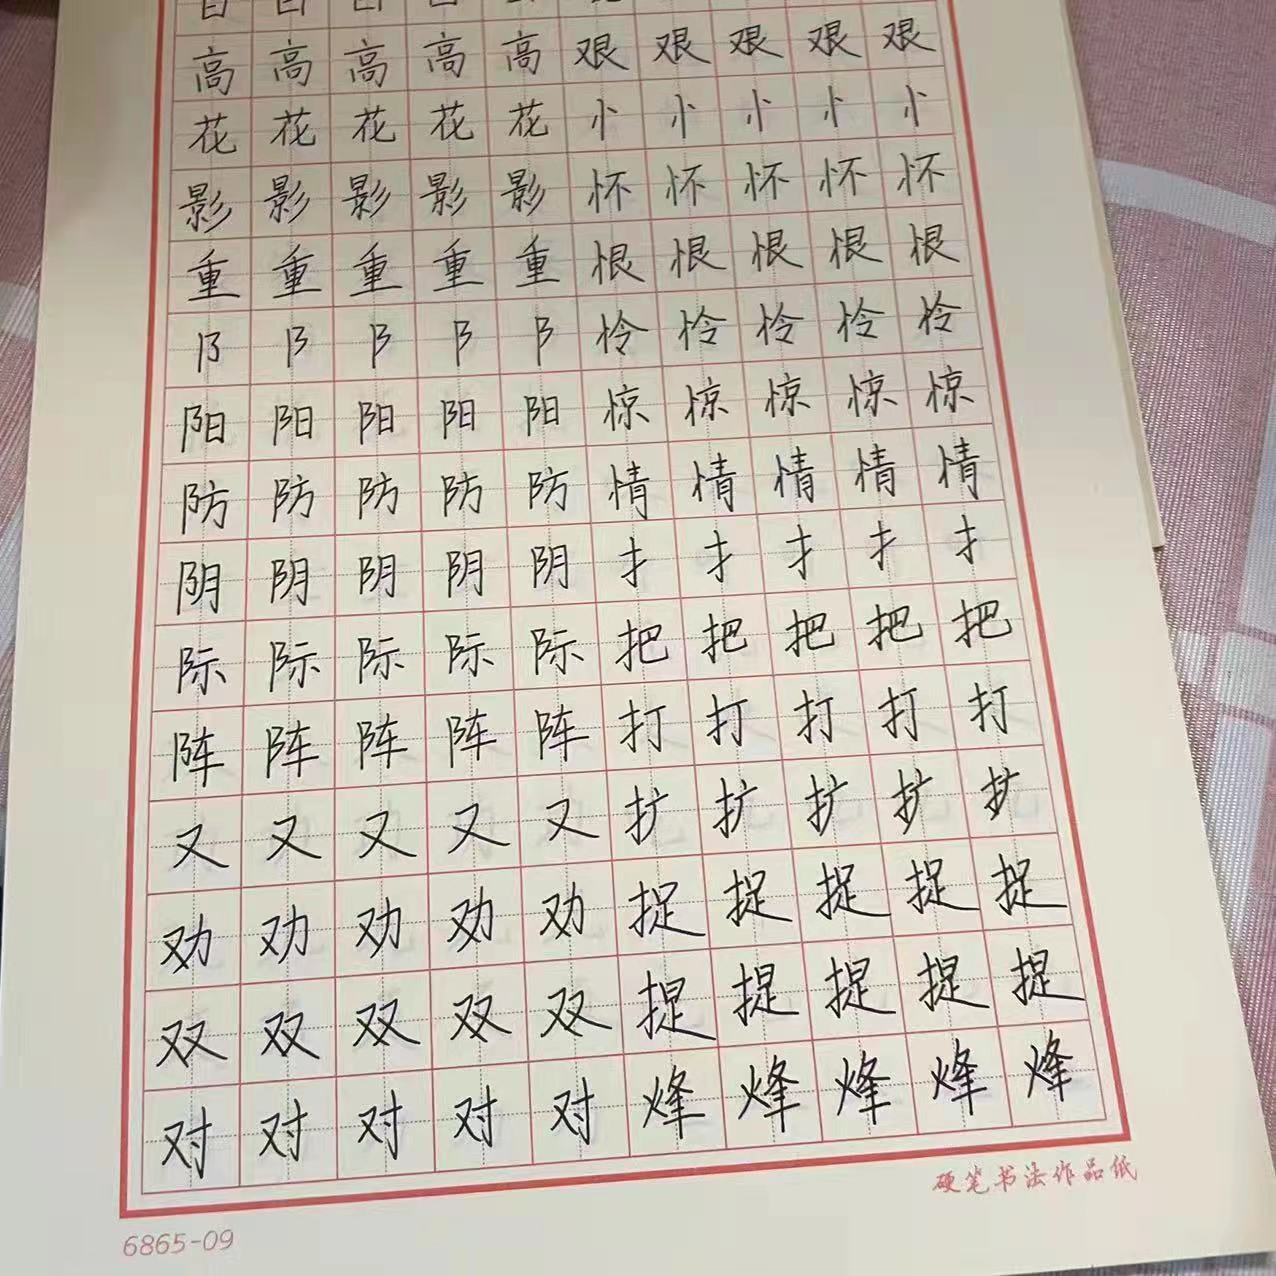 高高高高高艰艰艰艰艰
花花花花花忄忄忄忄忄
影影影影影怀怀怀怀怀
重重重重重恨恨恨恨恨
阝阝阝阝阝怜怜怜怜怜
阳阳阳阳阳惊惊惊惊惊
防防防防防情情情情情
阴阴阴阴阴扌扌扌扌扌
际际际际际把把把把把
阵阵阵阵阵打打打打打
又又又又又扩扩扩扩扩
劝劝劝劝劝捉捉捉捉捉
双双双双双捉捏捏捏捏
对对对对对烽烽烽烽烽
硬笔书法作品纸
6865-09